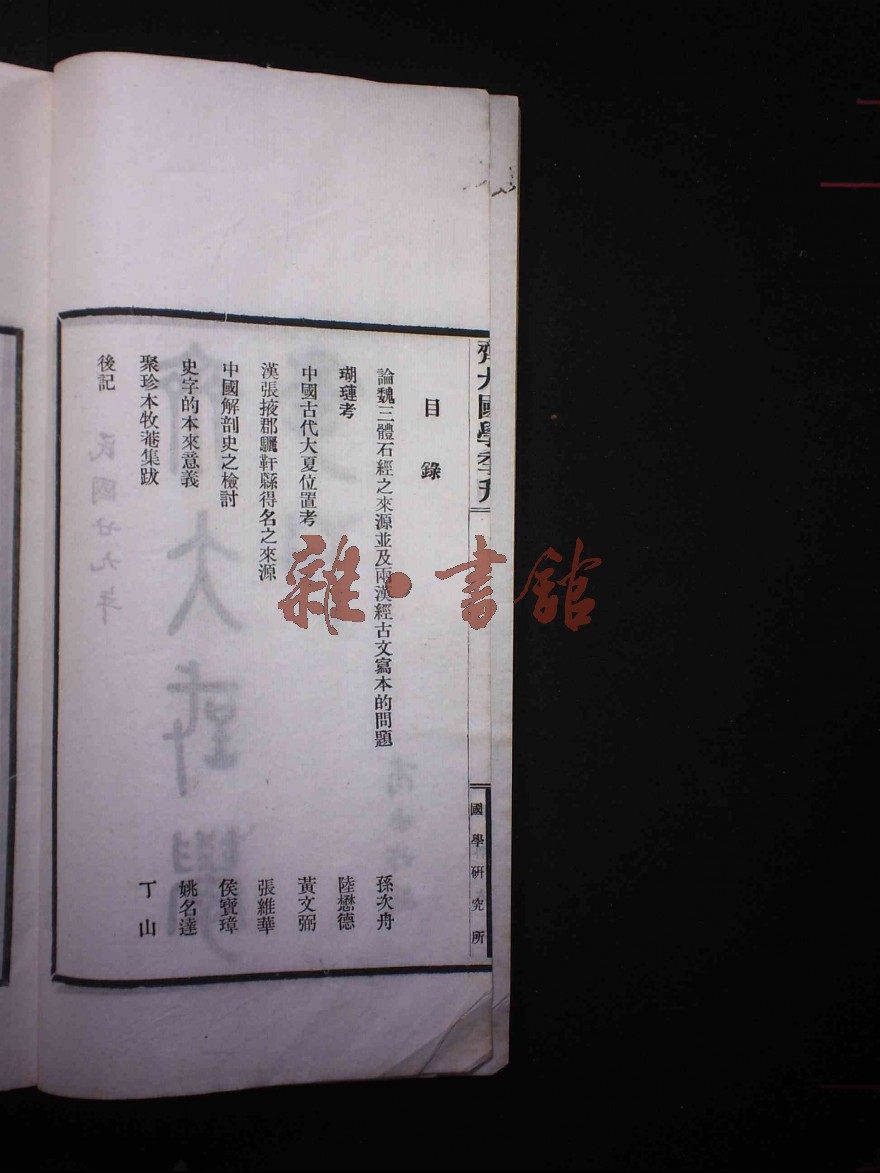 齊大國學季刊
國學研究所
目錄
論魏三體石經之來源並及兩漢經古文寫本的問題 孫次舟
瑚璉考 陸懋德
中國古代大夏位置考 黃文弼
漢張掖郡驪靬縣得名之來源 張維華
中國解剖史之檢討 侯寶璋
史字的本來意義 姚名達
聚珍本牧菴集跋 丁山
後記
民國廿九年
雜·書館